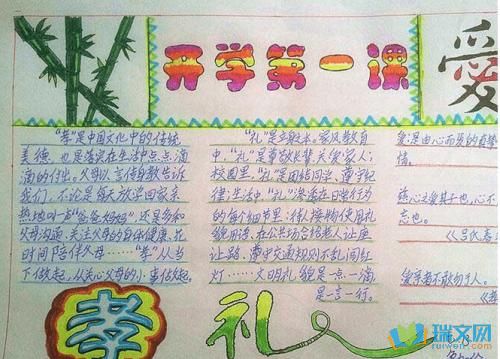 开学第一课
爱
"孝"是中国文化中的传统
美德,也是落实在生活中点点滴
滴的付出。父母以言传身教告诉
我们,不论是每天放学回家亲
热地叫一声"爸爸妈妈",还是多和
父母沟通,关注父母的身体健康,花
时间陪伴父母……"孝"从当
下做起,从关心父母的小事做起。
孝
"礼"是立身之本。家风教育
中,"礼"是尊敬长辈、关爱家人;
校园里,"礼"是团结同学、遵守纪
律;生活中,"礼"渗透在日常行为
的每个细节里:待人接物使用礼
貌用语、在公共场合给老人让座
让路、遵守交通规则不乱闯红
灯……文明礼貌是一点一滴,
是一言一行。
礼
爱是由心而发的真挚
情。
慈心之爱其子也,心不
忘也。
《吕氏春
爱亲者不敢恶于人。
《孝
瑞文网
ruiwen.com